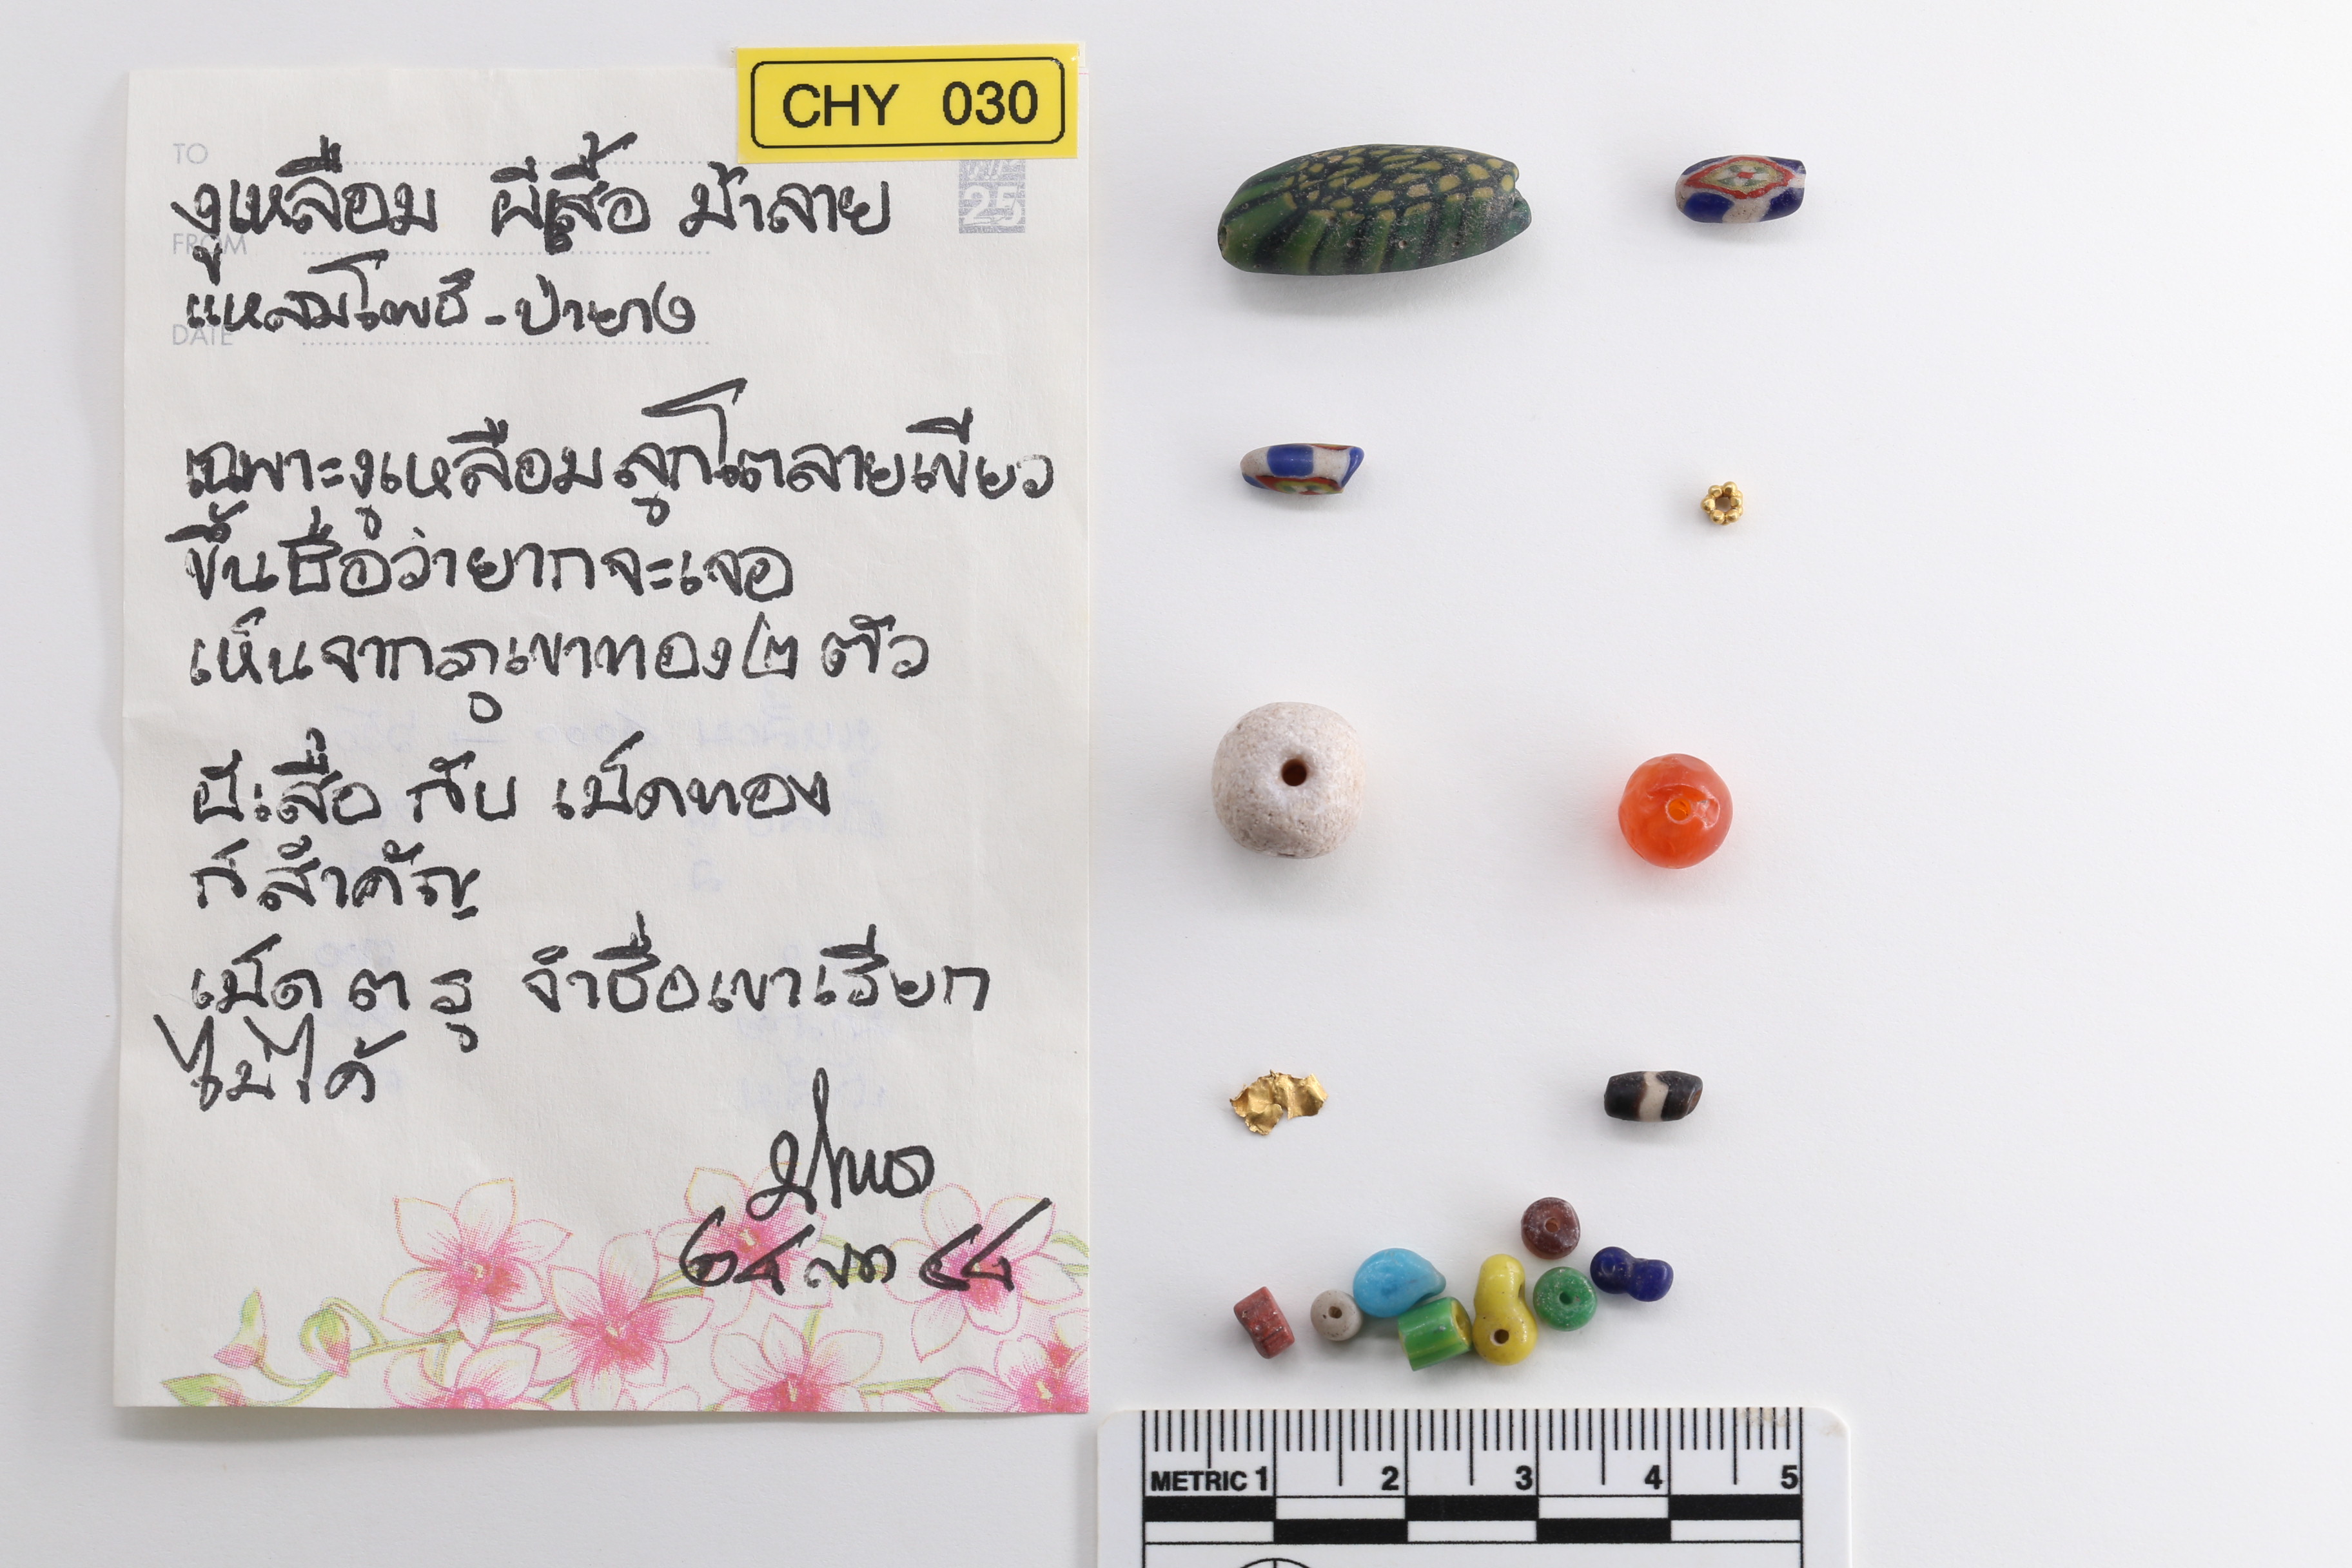 CHY 030
TO
25
งูเหลือม ผีเสื้อ ม้าลาย
FROM
แหลมโพธิ์-ป่ายาง
DATE
เฉพาะงูเหลือมลูกโตลายเขียว
ขึ้นชื่อว่ายากจะเจอ
เห็นจากภูเขาทอง ๒ ตัว
ผีเสื้อ กับ เม็ดทอง
ก็สำคัญ
เม็ด ๓ รู จำชื่อเขาเรียก
ไม่ได้
METRIC 1 2 3 4 5